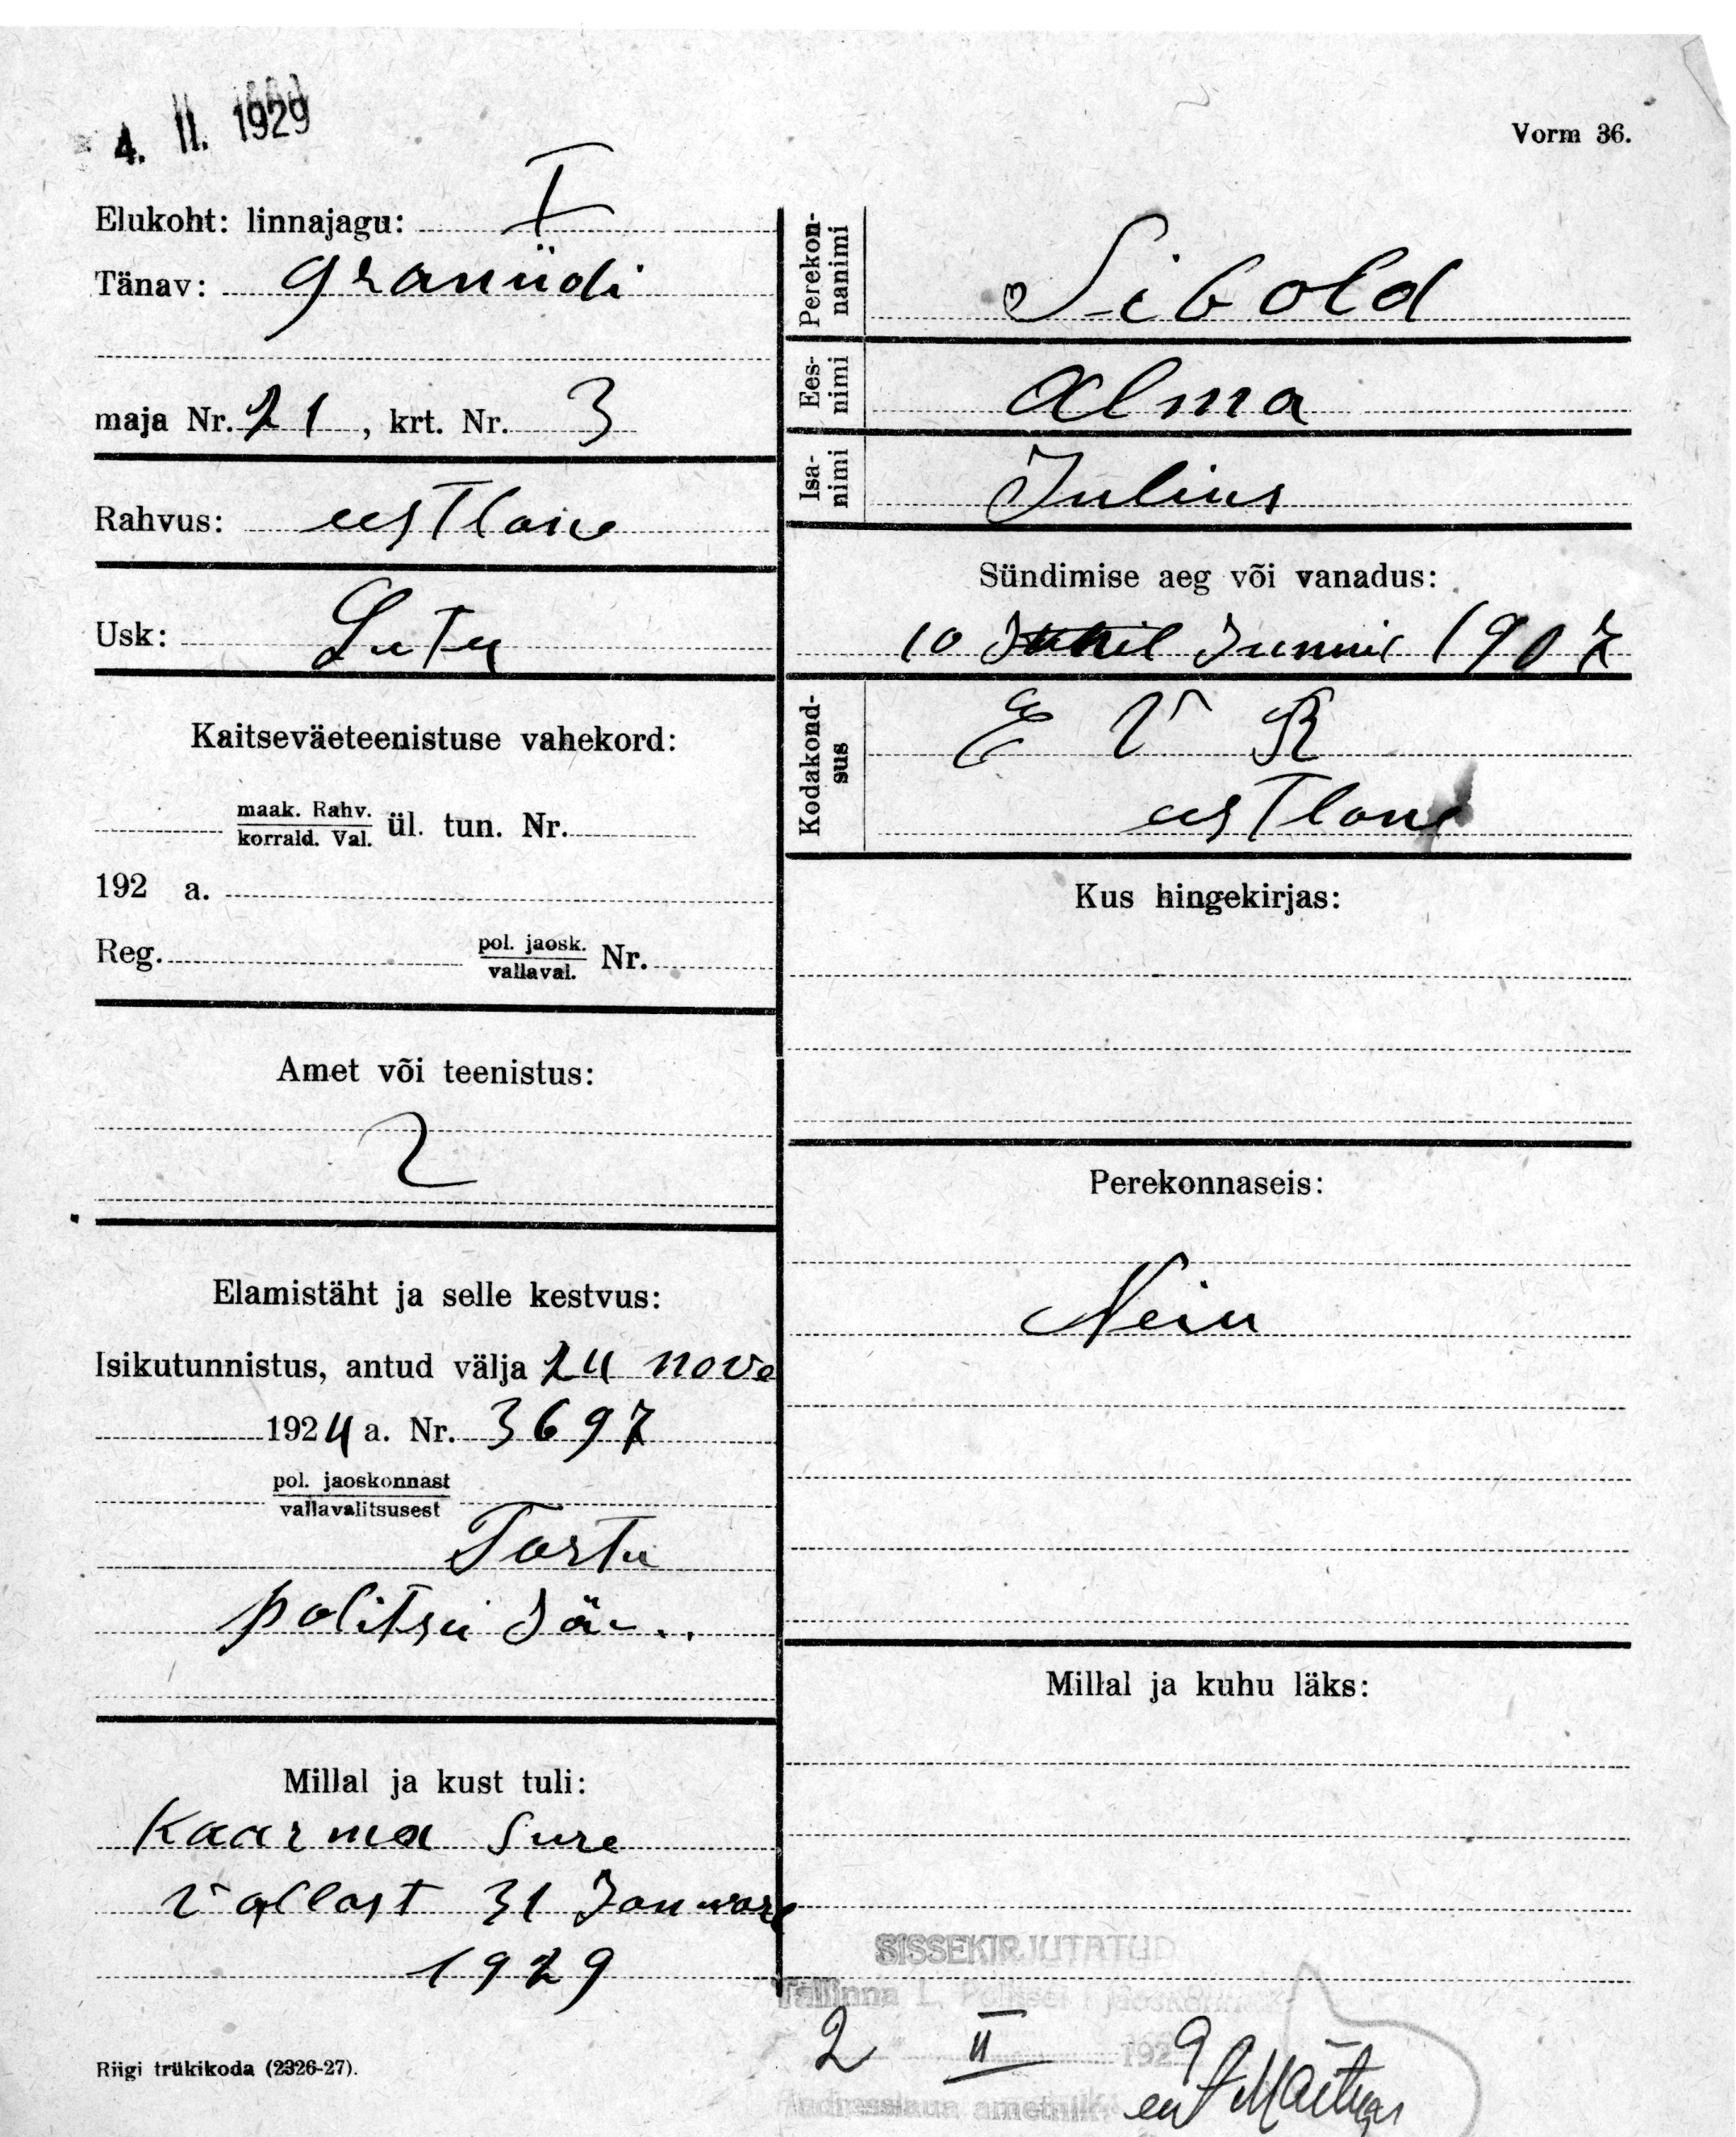 4. II. 1929
Vorm 36.
Elukoht: linnajagu: I
Tänav: Graniidi
maja Nr. 21, krt. Nr. 3
Rahvus: eestlane
Usk: Lutu
Kaitseväeteenistuse vahekord:
maak. Rahv.
korrald. Val. ül. tun. Nr.
192 a.
Reg. pol. jaosk.
vallaval. Nr.
Amet või teenistus:
2
Elamistäht ja selle kestvus:
Isikutunnistus, antud välja 24 nove
1924 a. Nr. 3697
pol. jaoskonnast
vallavalitsusest
Tartu
politsei
Millal ja kust tuli:
Kaarma Sure
vallast 31 Januare
1929
Riigi trükikoda (2326-27).
Perekon-
nanimi
Sibold
Ees-
nimi
Alma
Isa-
nimi
Julius
Sündimise aeg või vanadus:
10 Junnil 1907
Kodakond-
sus
E V R
eestlane
Kus hingekirjas:
Perekonnaseis:
Neiu
Millal ja kuhu läks:
SISSEKIRJUTATUD
Tallinna I. Politsei jaoskonnas
2 II 1929
Aadresslaua ametnik: